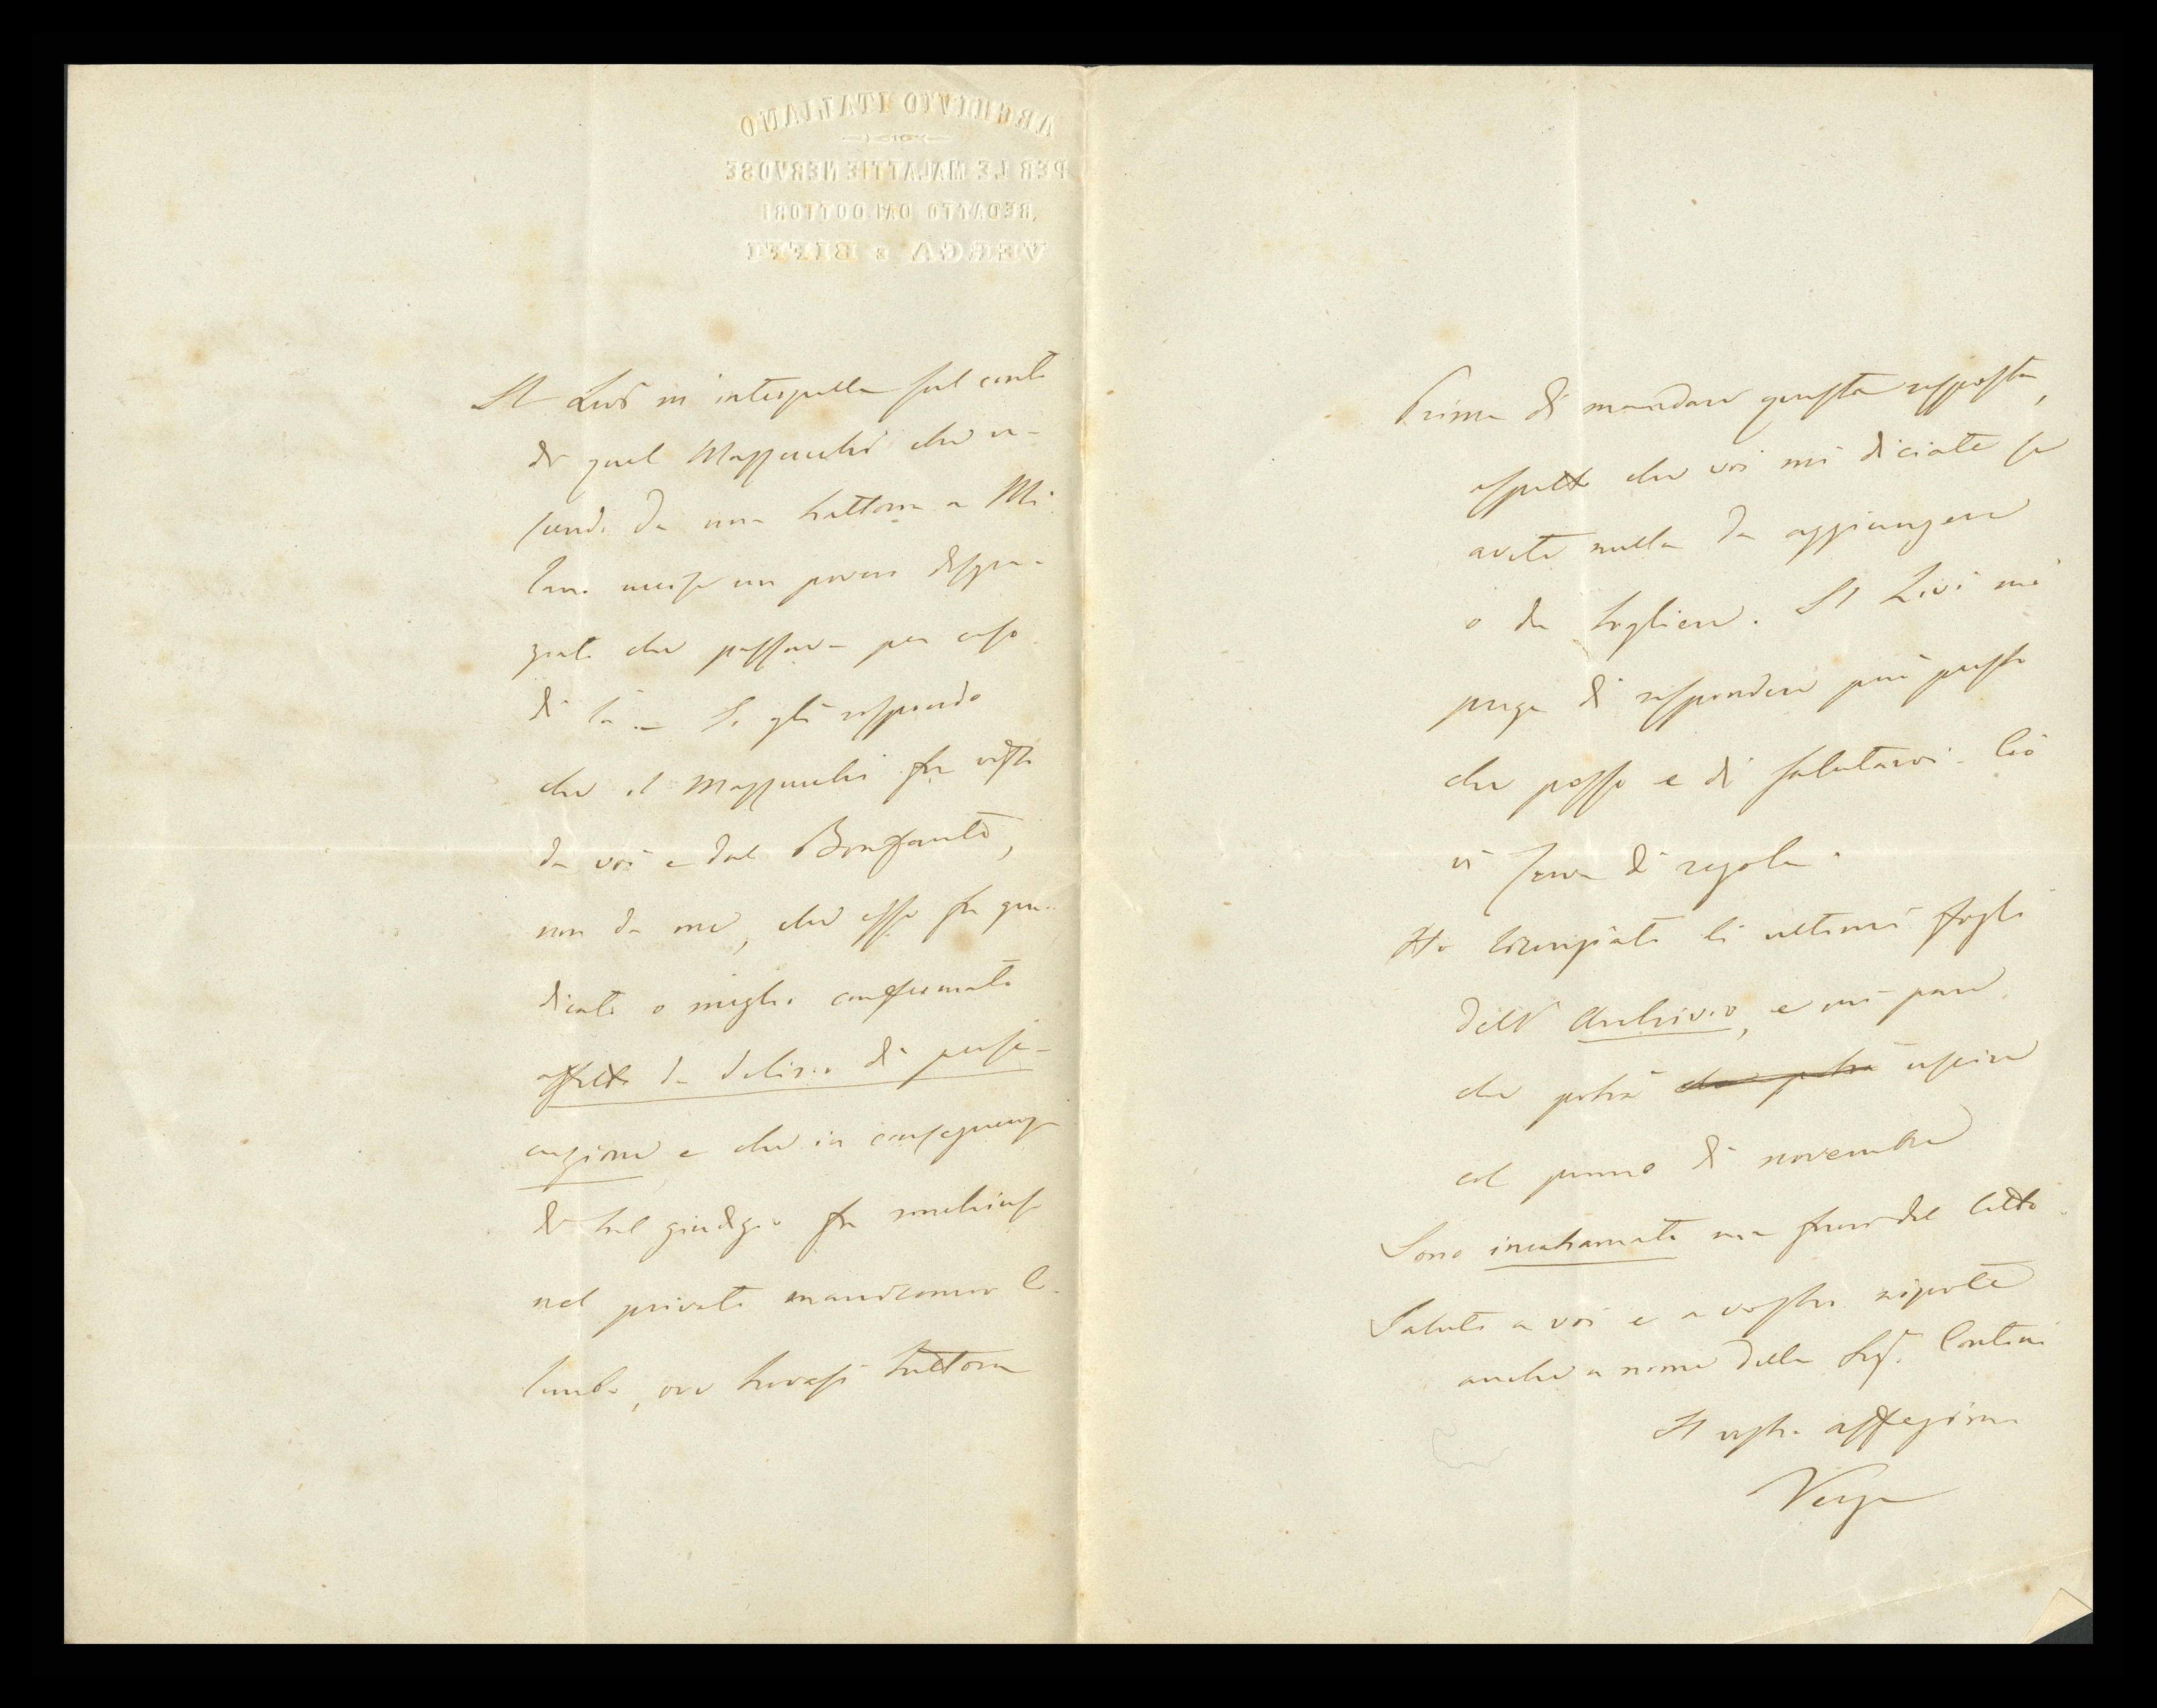 ARCHIVIO ITALIANO
PER LE MALATTIE NERVOSE
REDATTO DAI DOTTORI
VERGA E BIFFI
Il Livi m'interpella sul conto
di quel Mazzucchi che u-
scendo da una trattoria a Mi-
lano uccise un povero disgra-
ziato che passava per caso
di là. — Io gli rispondo
che il Mazzucchi fu visto
da voi e dal Bonfanti,
non da me, che esso fu giu-
dicato o meglio confermato
affetto da delirio di perse-
cuzione e che in conseguenza
di tal giudizio fu rinchiuso
nel privato manicomio Co-
lombo, ove trovasi tuttora
Prima di mandare questa risposta,
aspetto che voi mi diciate se
avete nulla da aggiungere
o da togliere. Il Livi mi
prega di rispondere più presto
che posso e di salutarvi. Ciò
vi serva di regola.
Ho licenziato li ultimi fogli
dell' Archivio, e mi pare
che potrà che potrà uscire
col primo di novembre
Sono incatramato ma fuori del letto.
Saluti a voi e a vostro nipote
anche a nome della Sig. Contini
Il vostro affezimo
Verga